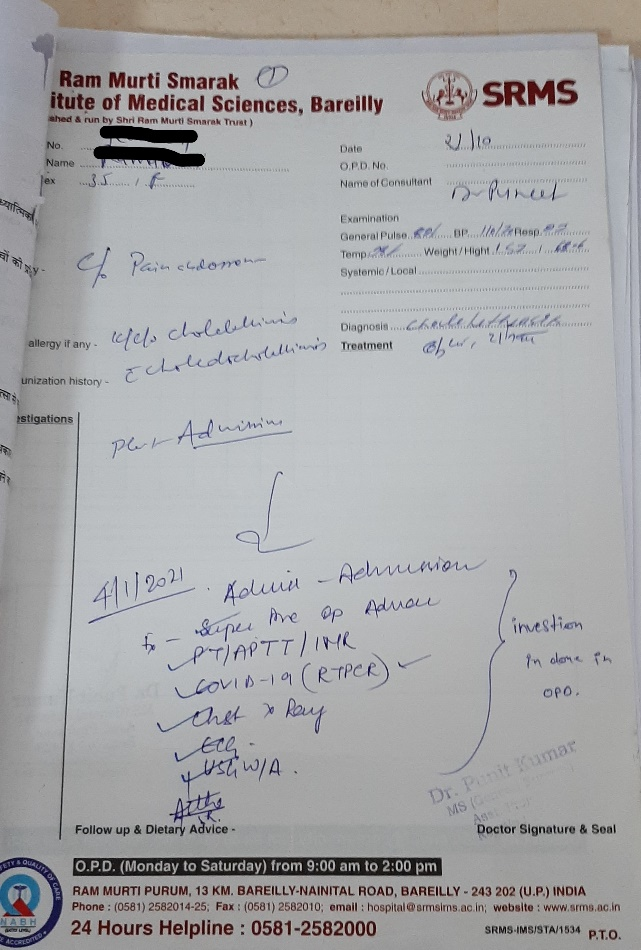 Ram Murti Smarak
itute of Medical Sciences, Bareilly
ahed & run by Shri Ram Murti Smarak Trust )
1
SRMS
No.
Name
ex 35 / F
Date 2/10
O.P.D. No.
Name of Consultant Dr Puneet
Examination
General Pulse BP Resp
Temp Weight/Hight 152 /
Systemic / Local
Diagnosis
Treatment
c/o Pain abdomen
allergy if any - K/c/o cholelithiasis
unization history - c choledocholithiasis
estigations
Plan Admission
4/1/2021 . Advice - Admission
Super Pre op Advice
PT/APTT/INR
COVID-19 (RTPCR)
Chest X Ray
ECG
USG W/A.
investion
in done in
OPD.
Dr. Punit Kumar
MS
Follow up & Dietary Advice -
Doctor Signature & Seal
O.P.D. (Monday to Saturday) from 9:00 am to 2:00 pm
RAM MURTI PURUM, 13 KM. BAREILLY-NAINITAL ROAD, BAREILLY - 243 202 (U.P.) INDIA
Phone : (0581) 2582014-25; Fax : (0581) 2582010; email : hospital@srmsims.ac.in; website : www.srms.ac.in
24 Hours Helpline : 0581-2582000
SRMS-IMS/STA/1534 P.T.O.
NABH